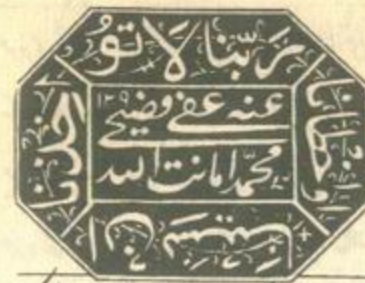 ربنا لا تو
اخذنا
ان نسينا
او اخطانا
عنه عفی فصیحی
محمد امانت الله